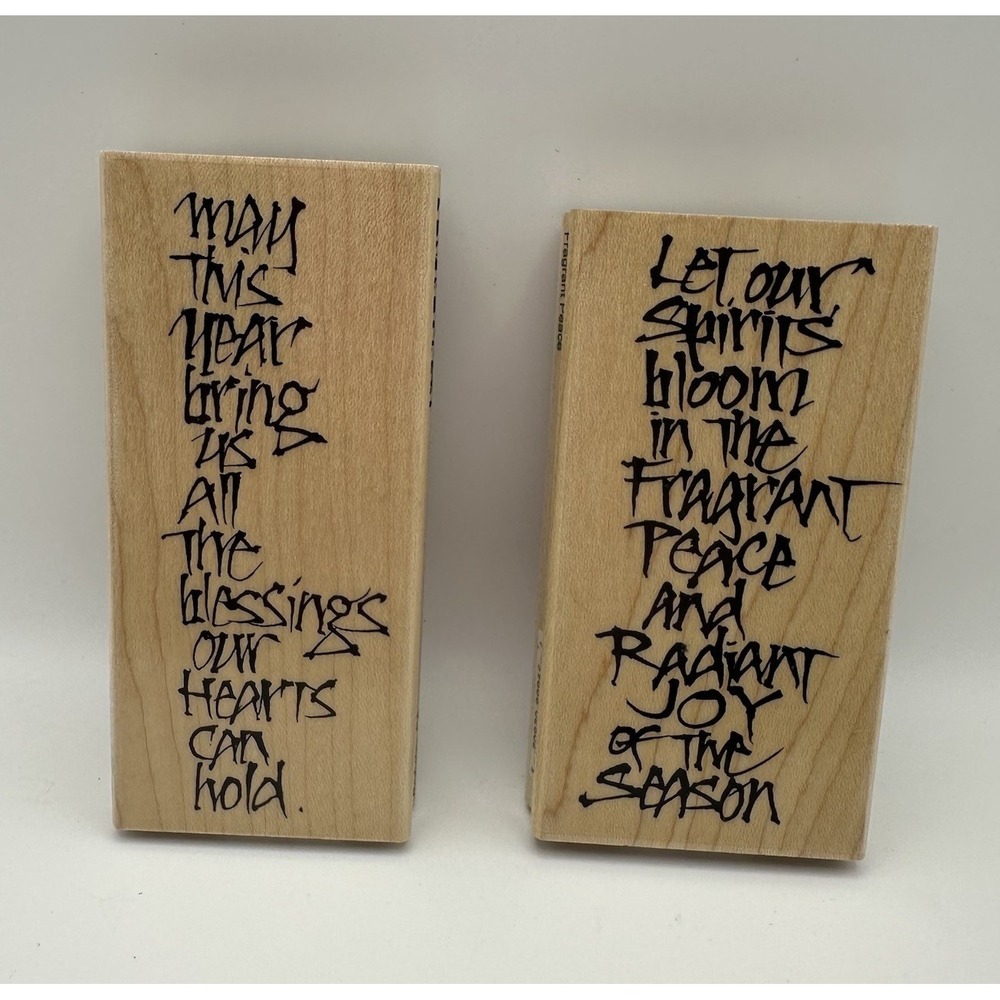 may
This
year
bring
us
All
The
blessings
our
Hearts
can
hold.
Fragrant Peace
LeT our
Spirits
bloom
in The
FragranT
Peace
and
RadianT
JOY
of The
Season